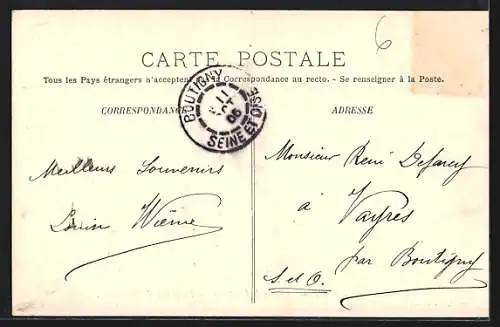 6
CARTE POSTALE
Tous les Pays étrangers n'acceptent pas la Correspondance au recto. - Se renseigner à la Poste.
CORRESPONDANCE
ADRESSE
BOUTIGNY
11
OCT
06
SEINE ET OISE
Meilleurs Souvenirs
Monsieur René
à
Vayres
par Boutigny
S. et O.